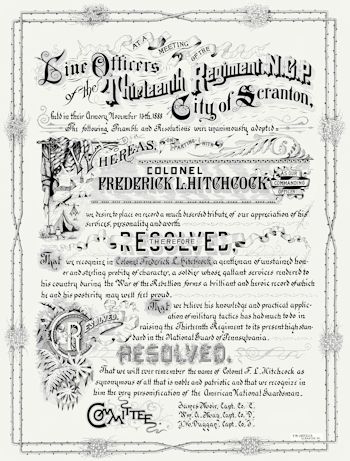 AT A MEETING OF THE
Line Officers
of the Thirteenth Regiment, N.G.P.
City of Scranton,
held in their Armory November 13th, 1888
The following Preamble and Resolutions were unanimously adopted:
WHEREAS, IN PARTING WITH
COLONEL
FREDERICK L. HITCHCOCK
COMMANDING
OFFICER
we desire to place on record a much deserved tribute of our appreciation of his
services, personality and worth
RESOLVED,
THEREFORE
That we recognize in Colonel Frederick L. Hitchcock a gentleman of unstained hon-
or and sterling probity of character, a soldier whose gallant services rendered to
his country during the War of the Rebellion forms a brilliant and heroic record of which
he and his posterity may well feel proud.
RESOLVED,
That we believe his knowledge and practical applic-
ation of military tactics has had much to do in
raising the Thirteenth Regiment to its present high stan-
dard in the National Guard of Pennsylvania.
RESOLVED,
That we will ever remember the name of Colonel F. L. Hitchcock as
synonymous of all that is noble and patriotic and that we recognize in
him the very personification of the American National Guardsman.
COMMITTEE
James Moir, Capt. Co.
Wm. A. May, Capt. Co. D.
Duggan, Capt. Co.